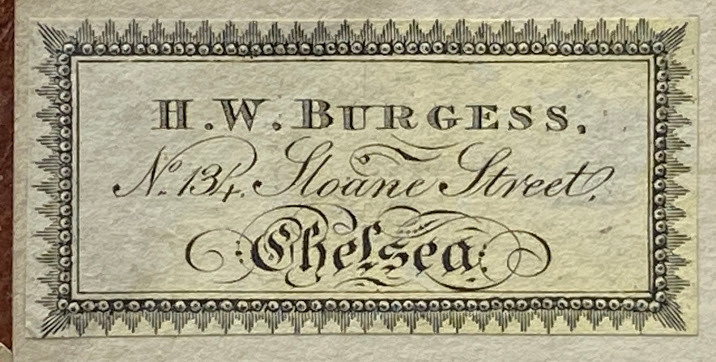 H.W. BURGESS.
No. 134. Sloane Street.
Chelsea.